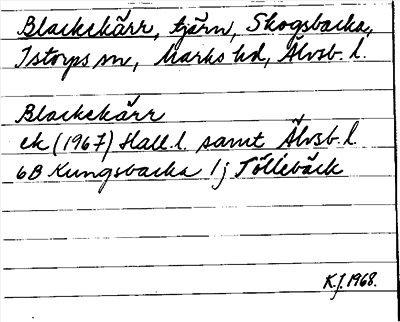 Blackekärr, tjärn, Skogsbacka,
Istorps sn, Marks hd, Älvsb. l.
Blackekärr
ek (1967) Hall. l. samt Älvsb. l.
6B Kungsbacka 1j Töllebäck
K.J. 1968.